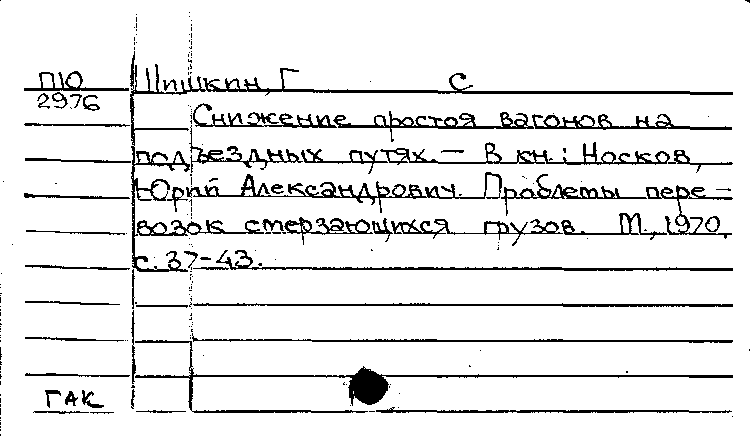 ПЮ Шишкин, Г С
2976
Снижение простоя вагонов на
подъездных путях. — В кн.: Носков,
Юрий Александрович. Проблемы пере-
возок смерзающихся грузов. М., 1970,
с. 37-43.
ГАК